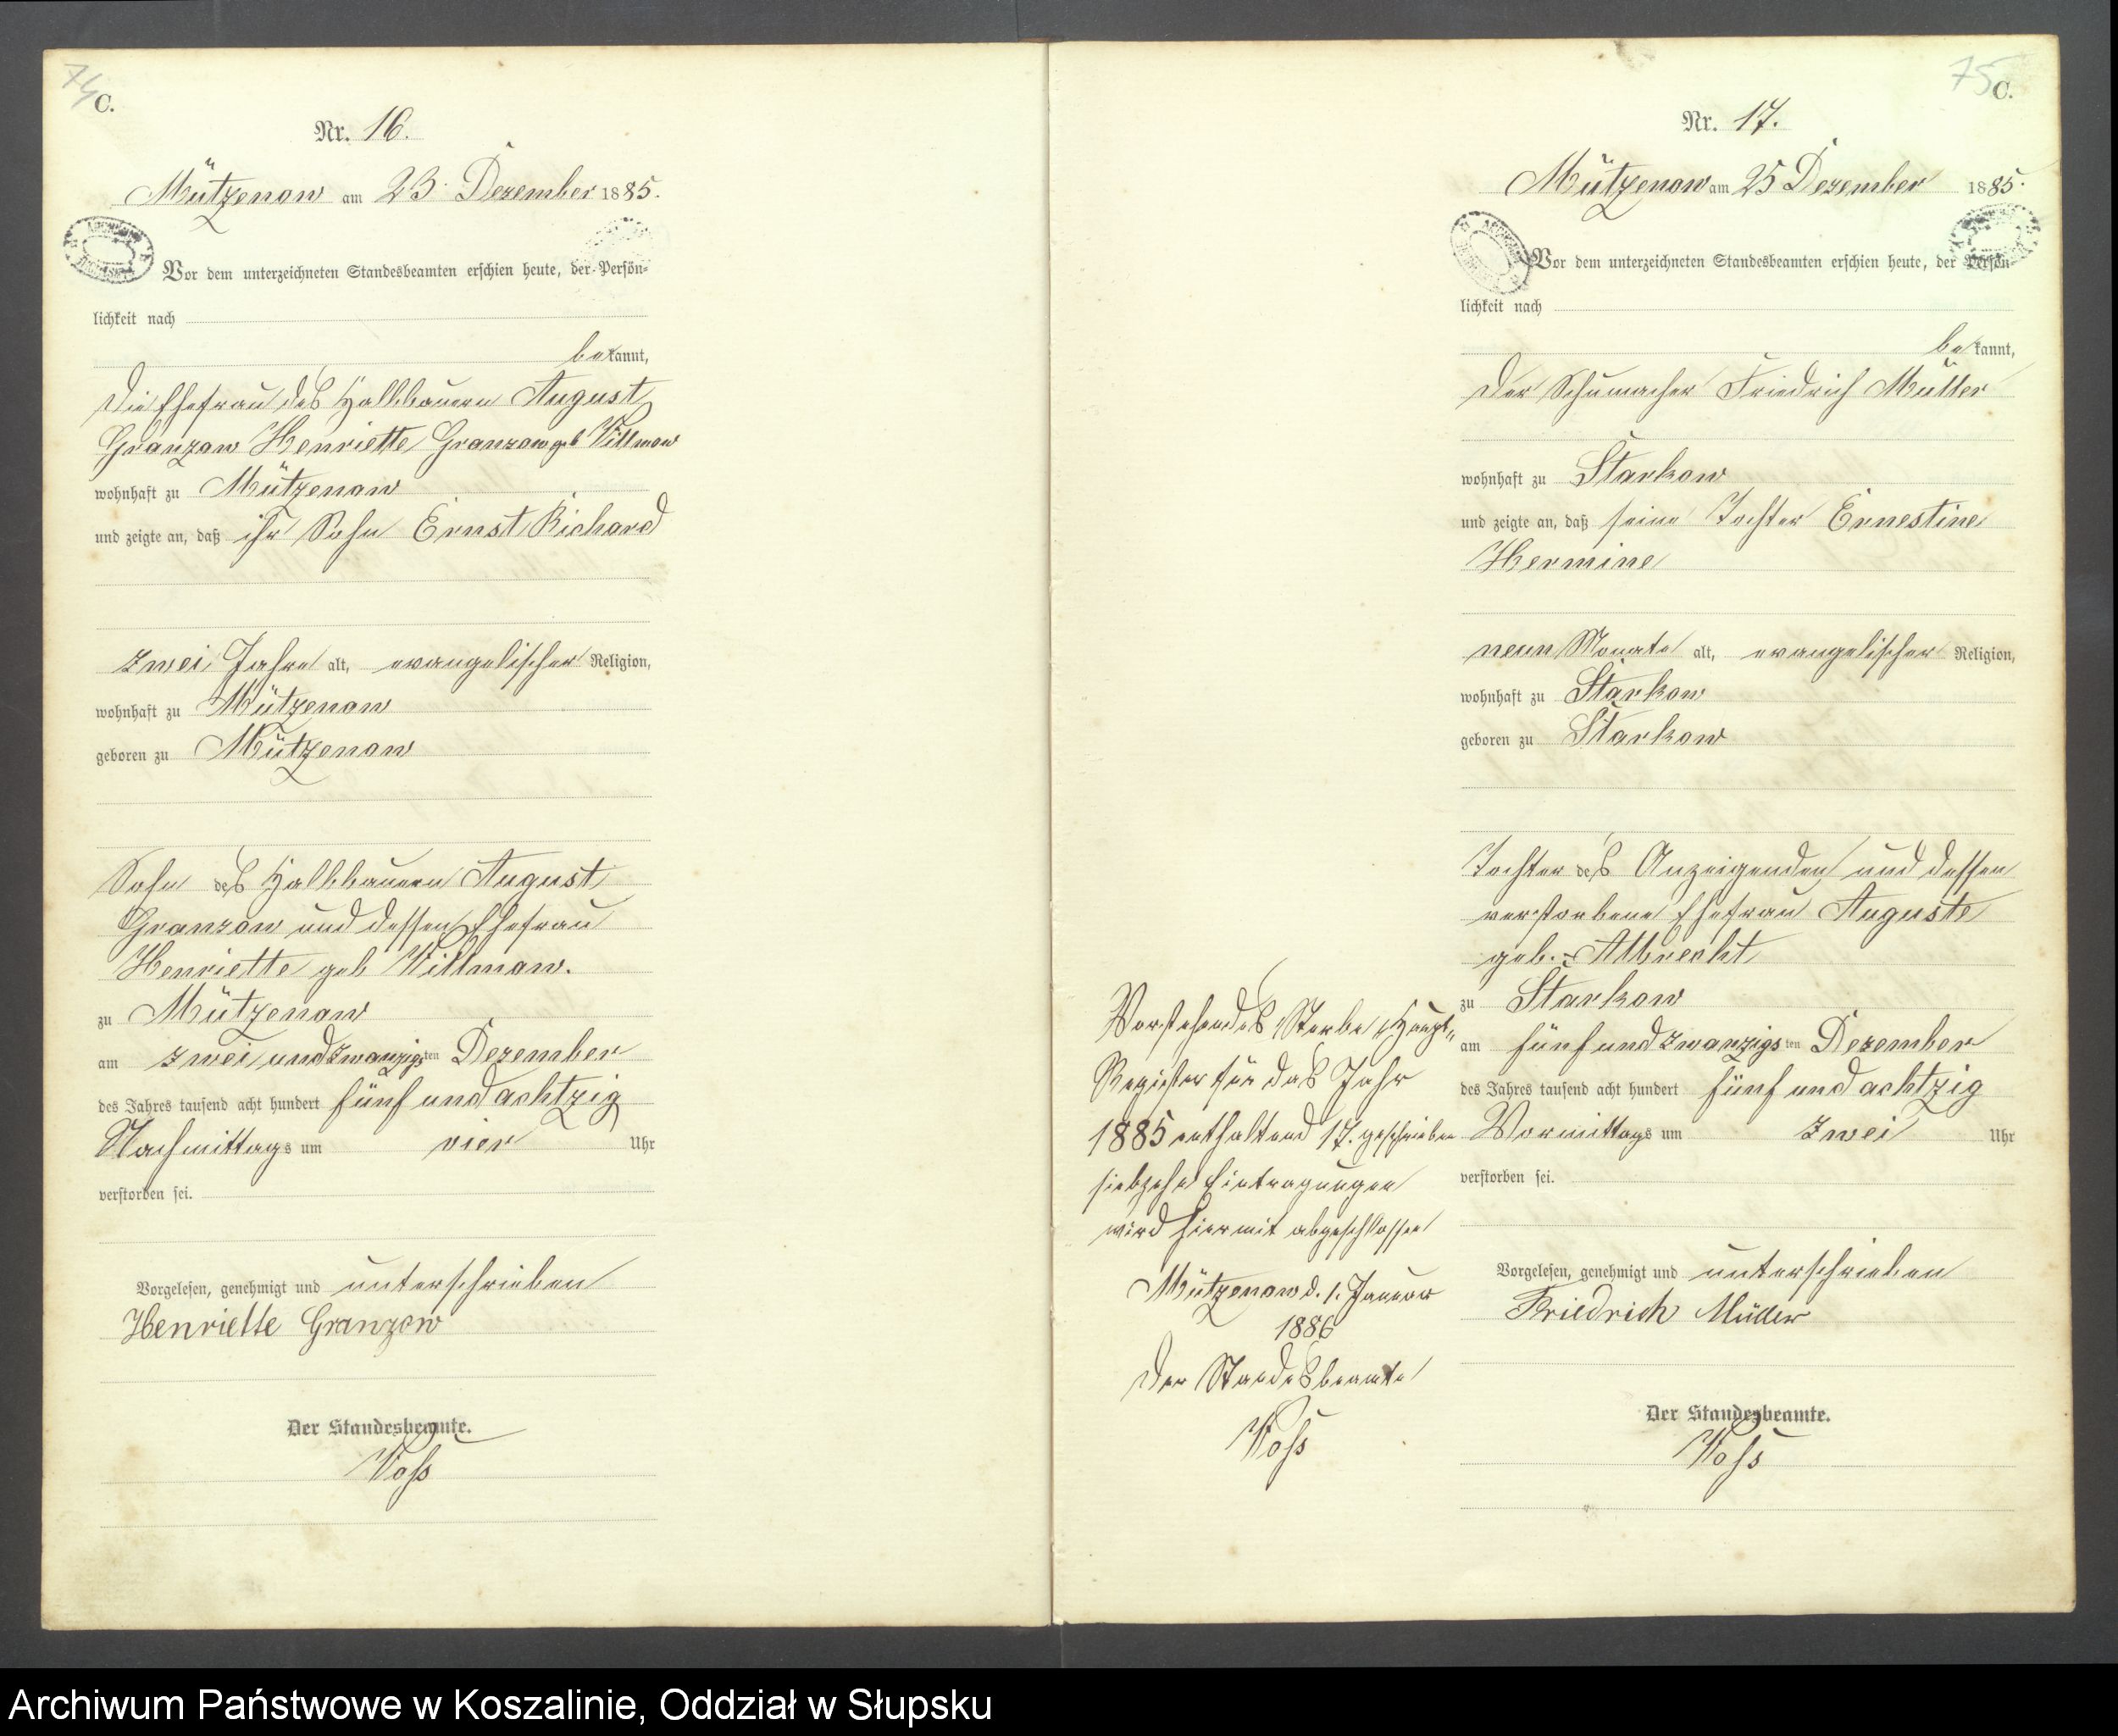 74
C.
Nr. 16.
Mützenow am 23. Dezember 1885.
Vor dem unterzeichneten Standesbeamten erschien heute, der Persön-
lichkeit nach
bekannt,
die Ehefrau des Halbbauern August
Granzow Henriette Granzow geb Villmow
wohnhaft zu Mützenow
und zeigte an, daß ihr Sohn Ernst Richard
zwei Jahre alt, evangelischer Religion,
wohnhaft zu Mützenow
geboren zu Mützenow
Sohn des Halbbauern August
Granzow und dessen Ehefrau
Henriette geb Villmow.
zu Mützenow
am zwei und zwanzigsten Dezember
des Jahres tausend acht hundert fünf und achtzig
Nachmittags um vier Uhr
verstorben sei.
Vorgelesen, genehmigt und unterschrieben
Henriette Granzow
Der Standesbeamte.
Voß
75
C.
Nr. 17.
Mützenow am 25 Dezember 1885.
Vor dem unterzeichneten Standesbeamten erschien heute, der Persön-
lichkeit nach
bekannt,
der Schumacher Friedrich Müller
wohnhaft zu Starkow
und zeigte an, daß seine Tochter Ernestine
Hermine
neun Monate alt, evangelischer Religion,
wohnhaft zu Starkow
geboren zu Starkow
Tochter des Anzeigenden und dessen
verstorbene Ehefrau Auguste
geb. Albrecht
zu Starkow
am fünf und zwanzigsten Dezember
des Jahres tausend acht hundert fünf und achtzig
Vormittags um zwei Uhr
verstorben sei.
Vorgelesen, genehmigt und unterschrieben
Friedrich Müller
Der Standesbeamte.
Voß
Vorstehendes Sterbe Haupt-
Register für das Jahr
1885 enthaltend 17. geschrieben
siebzehn Eintragungen
wird hiermit abgeschlossen
Mützenow d. 1. Januar
1886
Der Standesbeamte
Voß
Archiwum Państwowe w Koszalinie, Oddział w Słupsku